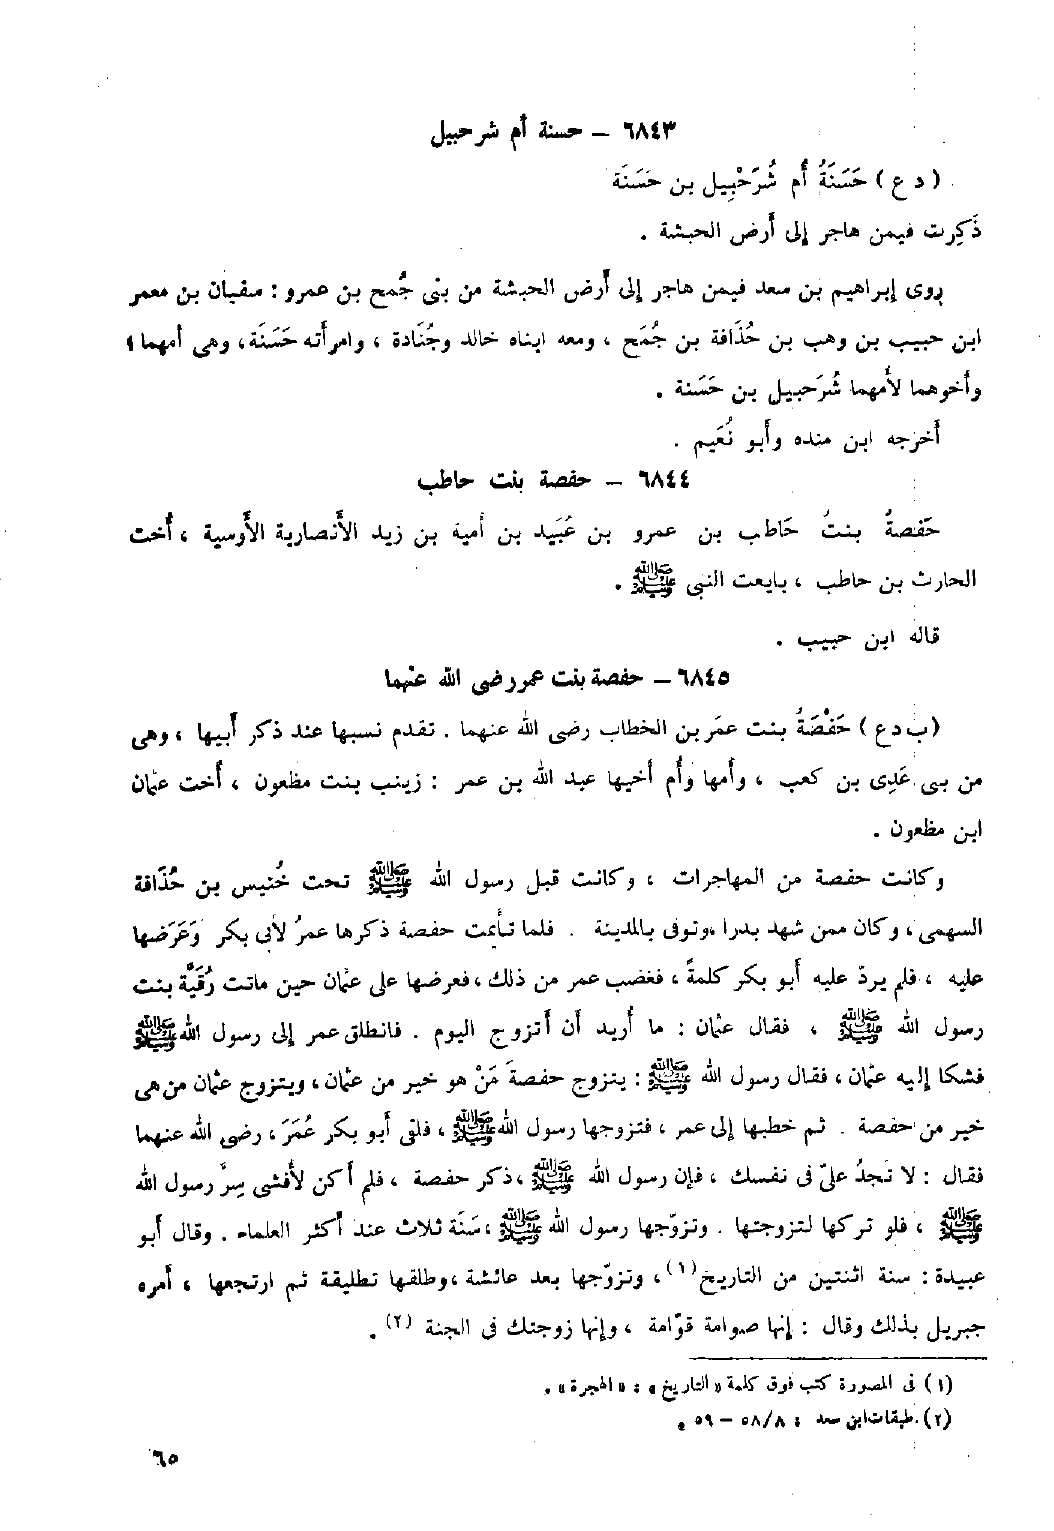 ٦٨٤٣ – حسنة أم شرحبيل
( د ع ) حَسَنَةُ أم شُرَحْبِيل بن حَسَنَة
ذَكِرت فيمن هاجر إلى أرض الحبشة .
روى إبراهيم بن سعد فيمن هاجر إلى أرض الحبشة من بنى جُمح بن عمرو : سفيان بن معمر
ابن حبيب بن وهب بن حُذَافة بن جُمَح ، ومعه ابناه خالد وجُنَادة ، وامرأته حَسَنَة، وهى أمهما ،
وأخوهما لأمهما شُرَحبيل بن حَسَنة .
أخرجه ابن منده وأبو نُعَيم .
٦٨٤٤ – حفصة بنت حاطب
حَفصةُ بنتُ حَاطب بن عمرو بن عُبَيد بن أمية بن زيد الأنصارية الأوسية ، أخت
الحارث بن حاطب ، بايعت النبى ﷺ .
قاله ابن حبيب .
٦٨٤٥ – حفصة بنت عمر رضى الله عنهما
( ب د ع ) حَفْصَةُ بنت عمَر بن الخطاب رضى الله عنهما . تقدم نسبها عند ذكر أبيها ، وهى
من بنى عَدِى بن كعب ، وأمها وأم أخيها عبد الله بن عمر : زينب بنت مظعون ، أخت عثمان
ابن مظعون .
وكانت حفصة من المهاجرات ، وكانت قبل رسول الله ﷺ تحت خُنيس بن حُذَافة
السهمى ، وكان ممن شهد بدرا ،وتوفى بالمدينة . فلما تأيمت حفصة ذكرها عمرُ لأبى بكر وَعَرَضها
عليه ، فلم يردّ عليه أبو بكر كلمةً ، فغضب عمر من ذلك ، فعرضها على عثمان حين ماتت رُقَيَّة بنت
رسول الله ﷺ ، فقال عثمان : ما أريد أن أتزوج اليوم . فانطلق عمر إلى رسول الله ﷺ
فشكا إليه عثمان ، فقال رسول الله ﷺ : يتزوج حفصةَ مَنْ هو خير من عثمان ، ويتزوج عثمان من هى
خير من حفصة . ثم خطبها إلى عمر ، فتزوجها رسول الله ﷺ ، فلقى أبو بكر عُمَرَ ، رضى الله عنهما
فقال : لا تَجدُ علىّ فى نفسك ، فإن رسول الله ﷺ ،ذكر حفصة ، فلم أكن لأفشى سِرَّ رسول الله
ﷺ ، فلو تركها لتزوجتها . وتزوّجها رسول الله ﷺ ،سَنَة ثلاث عند أكثر العلماء . وقال أبو
عبيدة : سنة اثنتين من التاريخ(١)، وتزوّجها بعد عائشة ،وطلقها تطليقة ثم ارتجعها ، أمره
جبريل بذلك وقال : إنها صوامة قوّامة ، وإنها زوجتك فى الجنة (٢) .
(١) فى المصورة كتب فوق كلمة « التاريخ » : « الهجرة » .
(٢) طبقات ابن سعد : ٨/ ٥٨ – ٥٩ .
٦٥